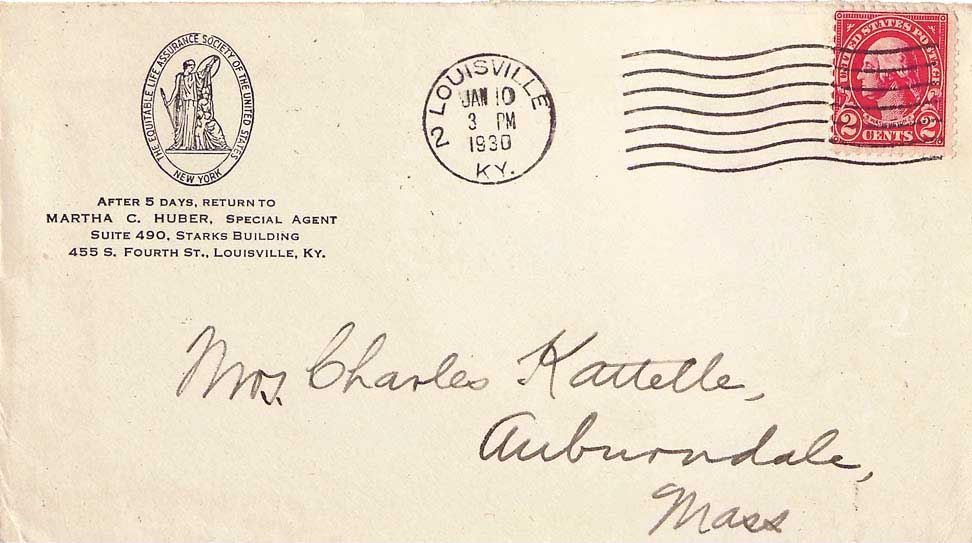 THE EQUITABLE LIFE ASSURANCE SOCIETY OF THE UNITED STATES
NEW YORK
AFTER 5 DAYS, RETURN TO
MARTHA C. HUBER, SPECIAL AGENT
SUITE 490, STARKS BUILDING
455 S. FOURTH ST., LOUISVILLE, KY.
2 LOUISVILLE
JAN 10
3 PM
1930
KY.
UNITED STATES POSTAGE
2 CENTS 2
Mrs. Charles Kattelle,
Auburndale,
Mass